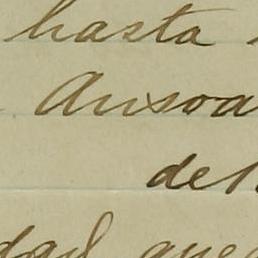 hasta
Ansoa
de
dad que